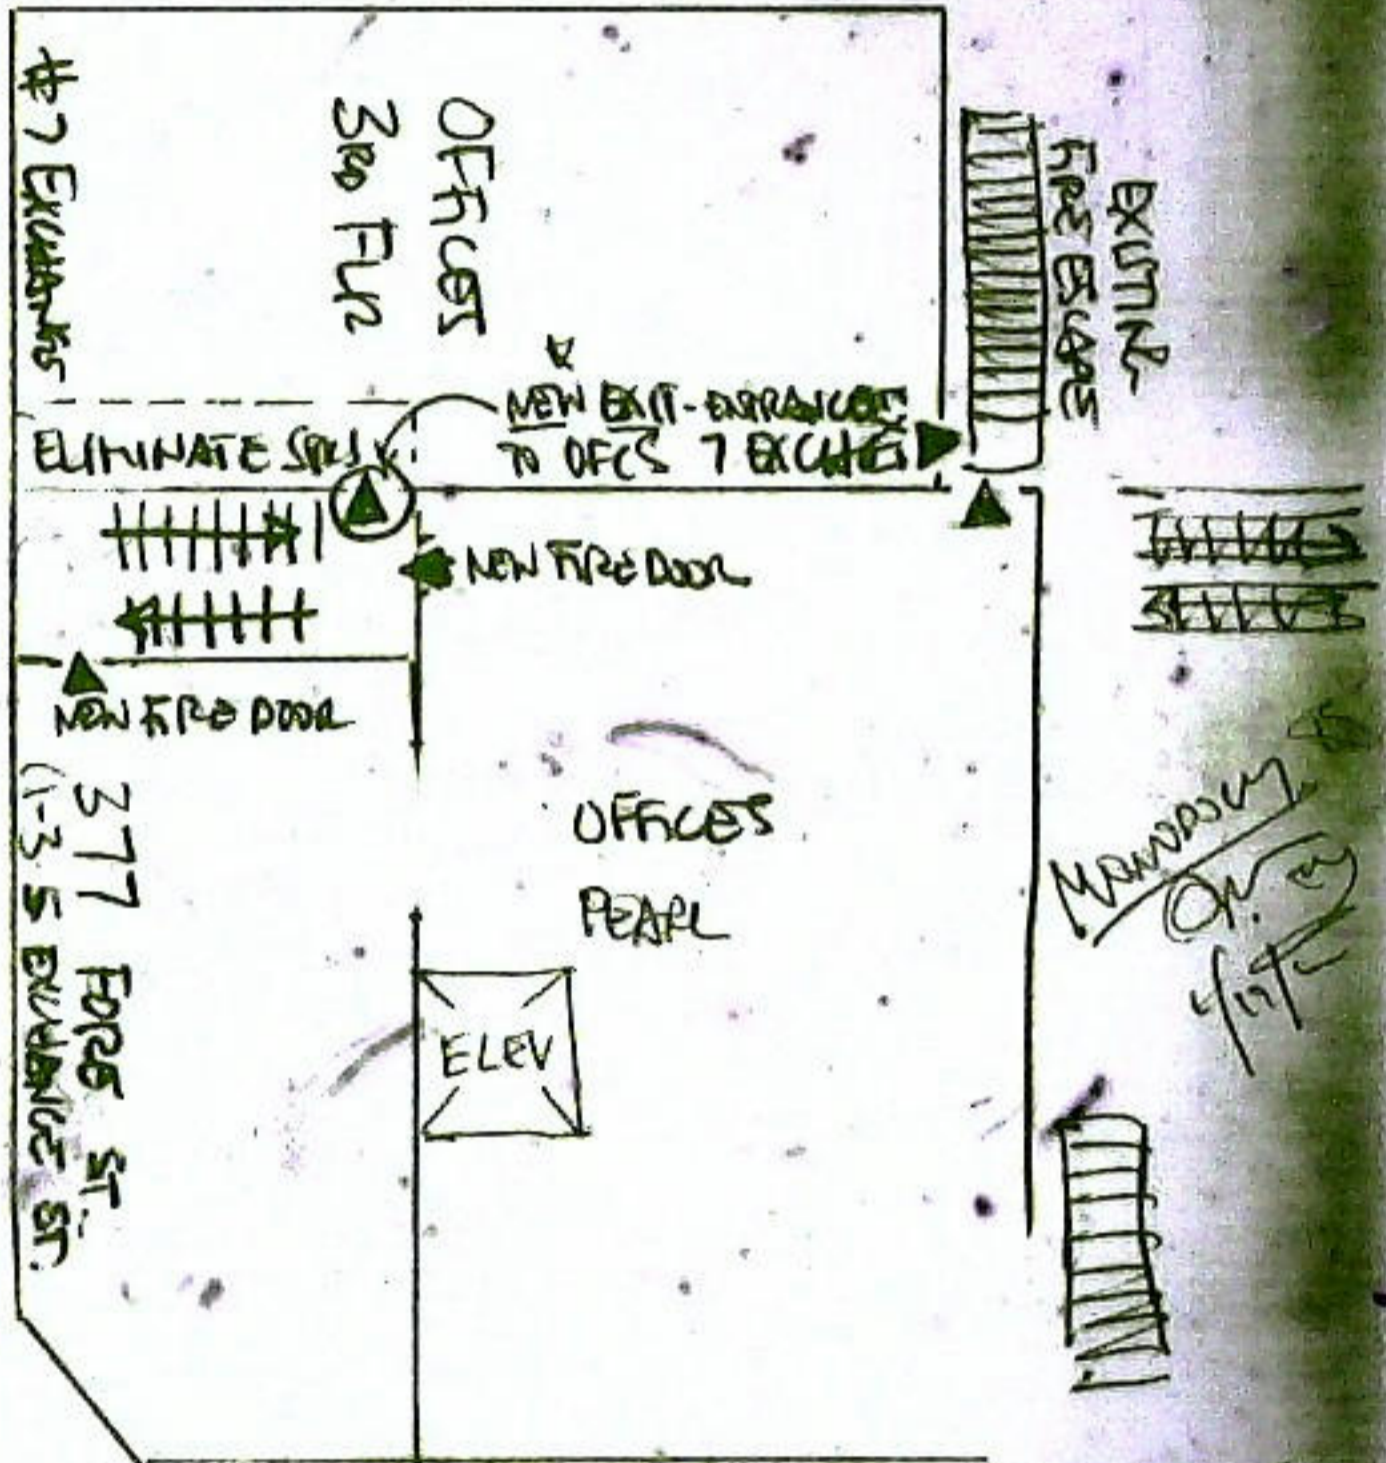 #7 EXCHANGE
OFFICES
3RD FLR
EXISTING
FIRE ESCAPES
NEW EXIT-ENTRANCES
TO OFCS 7 EXCHG
ELIMINATE
NEW FIRE DOOR
NEW FIRE DOOR
OFFICES
PEARL
ELEV
377 FORE ST.
(1-3-5 EXCHANGE ST.